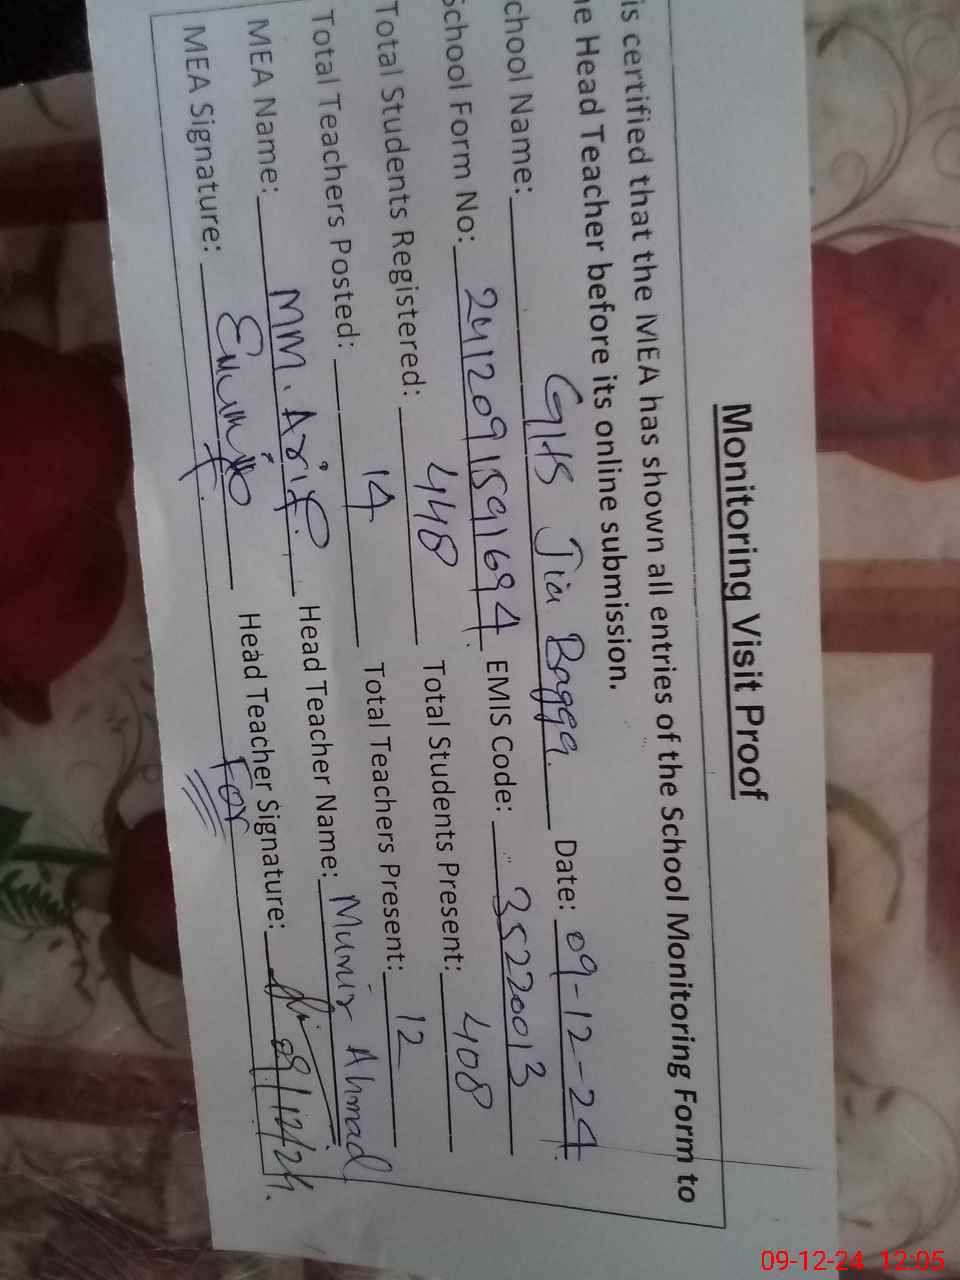 Monitoring Visit Proof
is certified that the MEA has shown all entries of the School Monitoring Form to
e Head Teacher before its online submission.
chool Name: GHS Jia Bagga. Date: 09-12-24
School Form No: 2412091591694 EMIS Code: 35220013
Total Students Registered: 448 Total Students Present: 408
Total Teachers Posted: 14 Total Teachers Present: 12
MEA Name: MM. Arif. Head Teacher Name: Munir Ahmad
MEA Signature: Head Teacher Signature: 09/12/24.
For
09-12-24 12:05